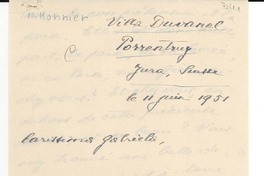 M. Monnier
Villa Duvanel
Porrentruy
Jura, Suisse
le 11 juin 1951
Carissima Gabriela,